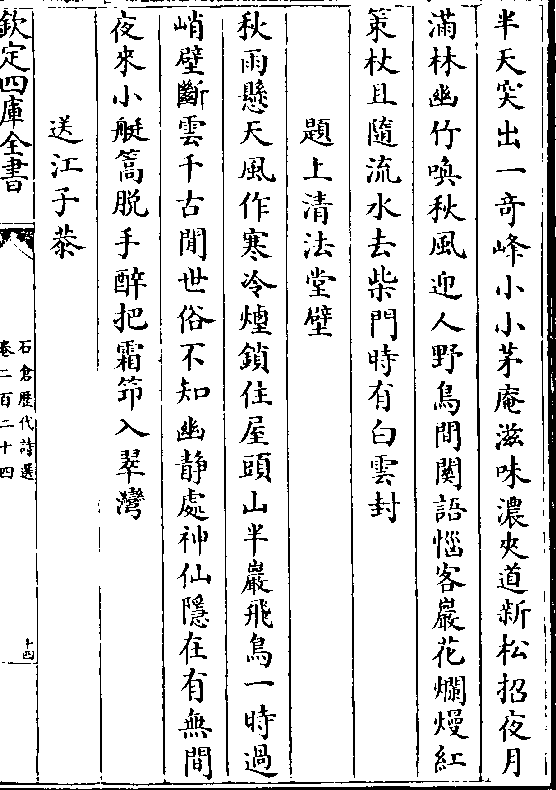 半天突出一竒峰小小茅庵滋味濃夾道新松招夜月
滿林幽竹喚秋風迎人野鳥間闗語惱客巖花爛熳紅
策杖且隨流水去柴門時有白雲封
題上清法堂壁
秋雨懸天風作寒冷煙鎖住屋頭山半巖飛鳥一時過
峭壁斷雲千古閒世俗不知幽靜處神仙隱在有無間
夜來小艇篙脱手醉把霜笻入翠灣
送江子恭
欽定四庫全書
石倉歴代詩選
卷二百二十四
十四